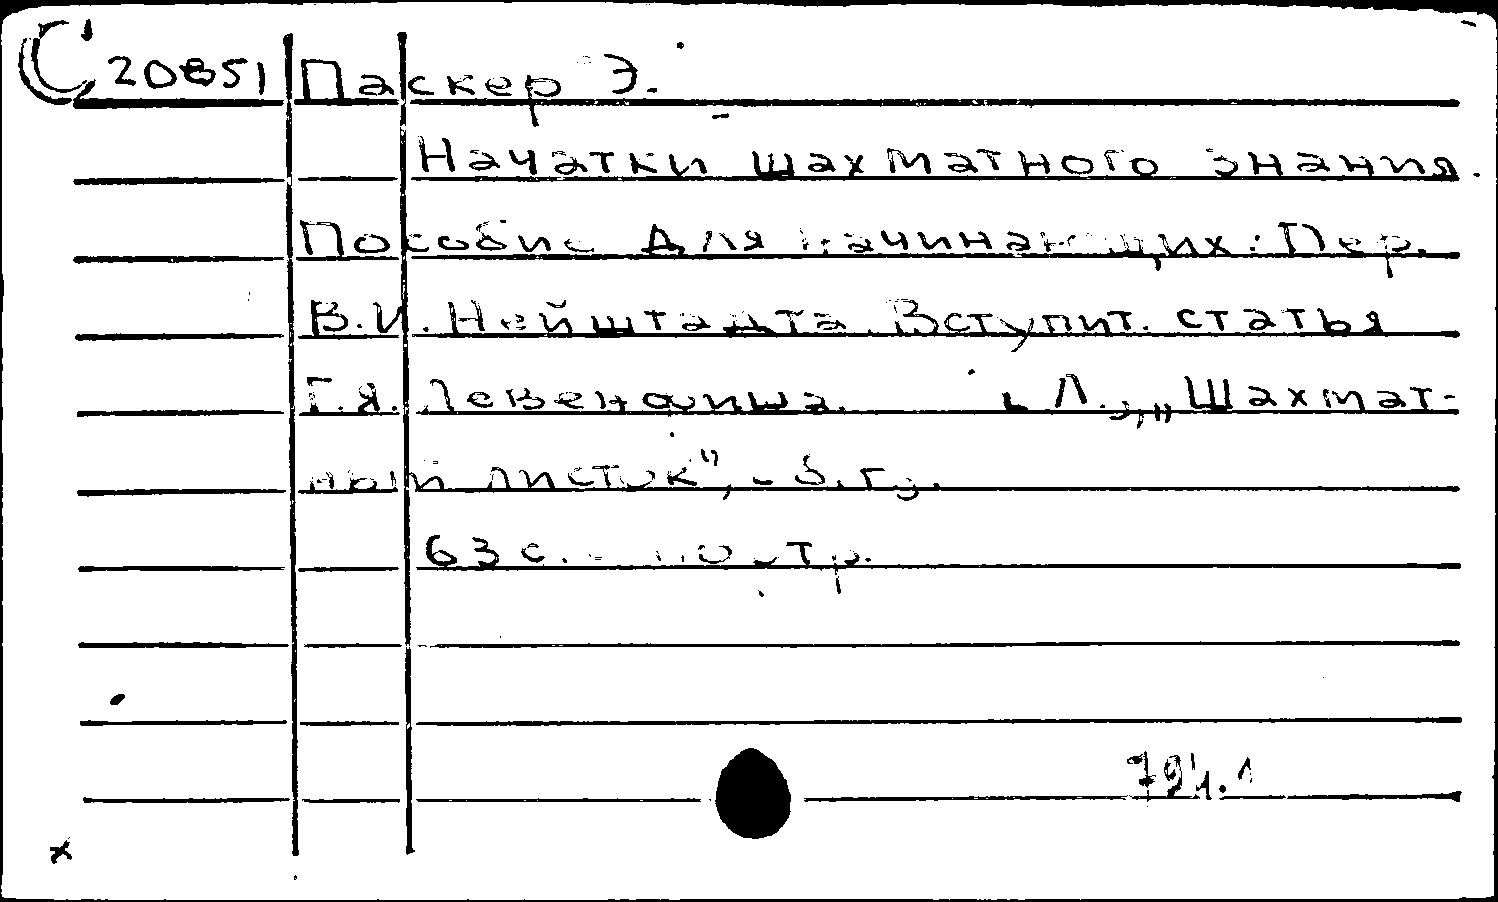 С 20851 Паскер Э.
Начатки шахматного знания.
Пособие для начинающих: Пер.
В.И. Нейштадта. Вступит. статья
Г.Я. Левенфиша. Л., „Шахмат-
ный листок",
63 с.
794.1